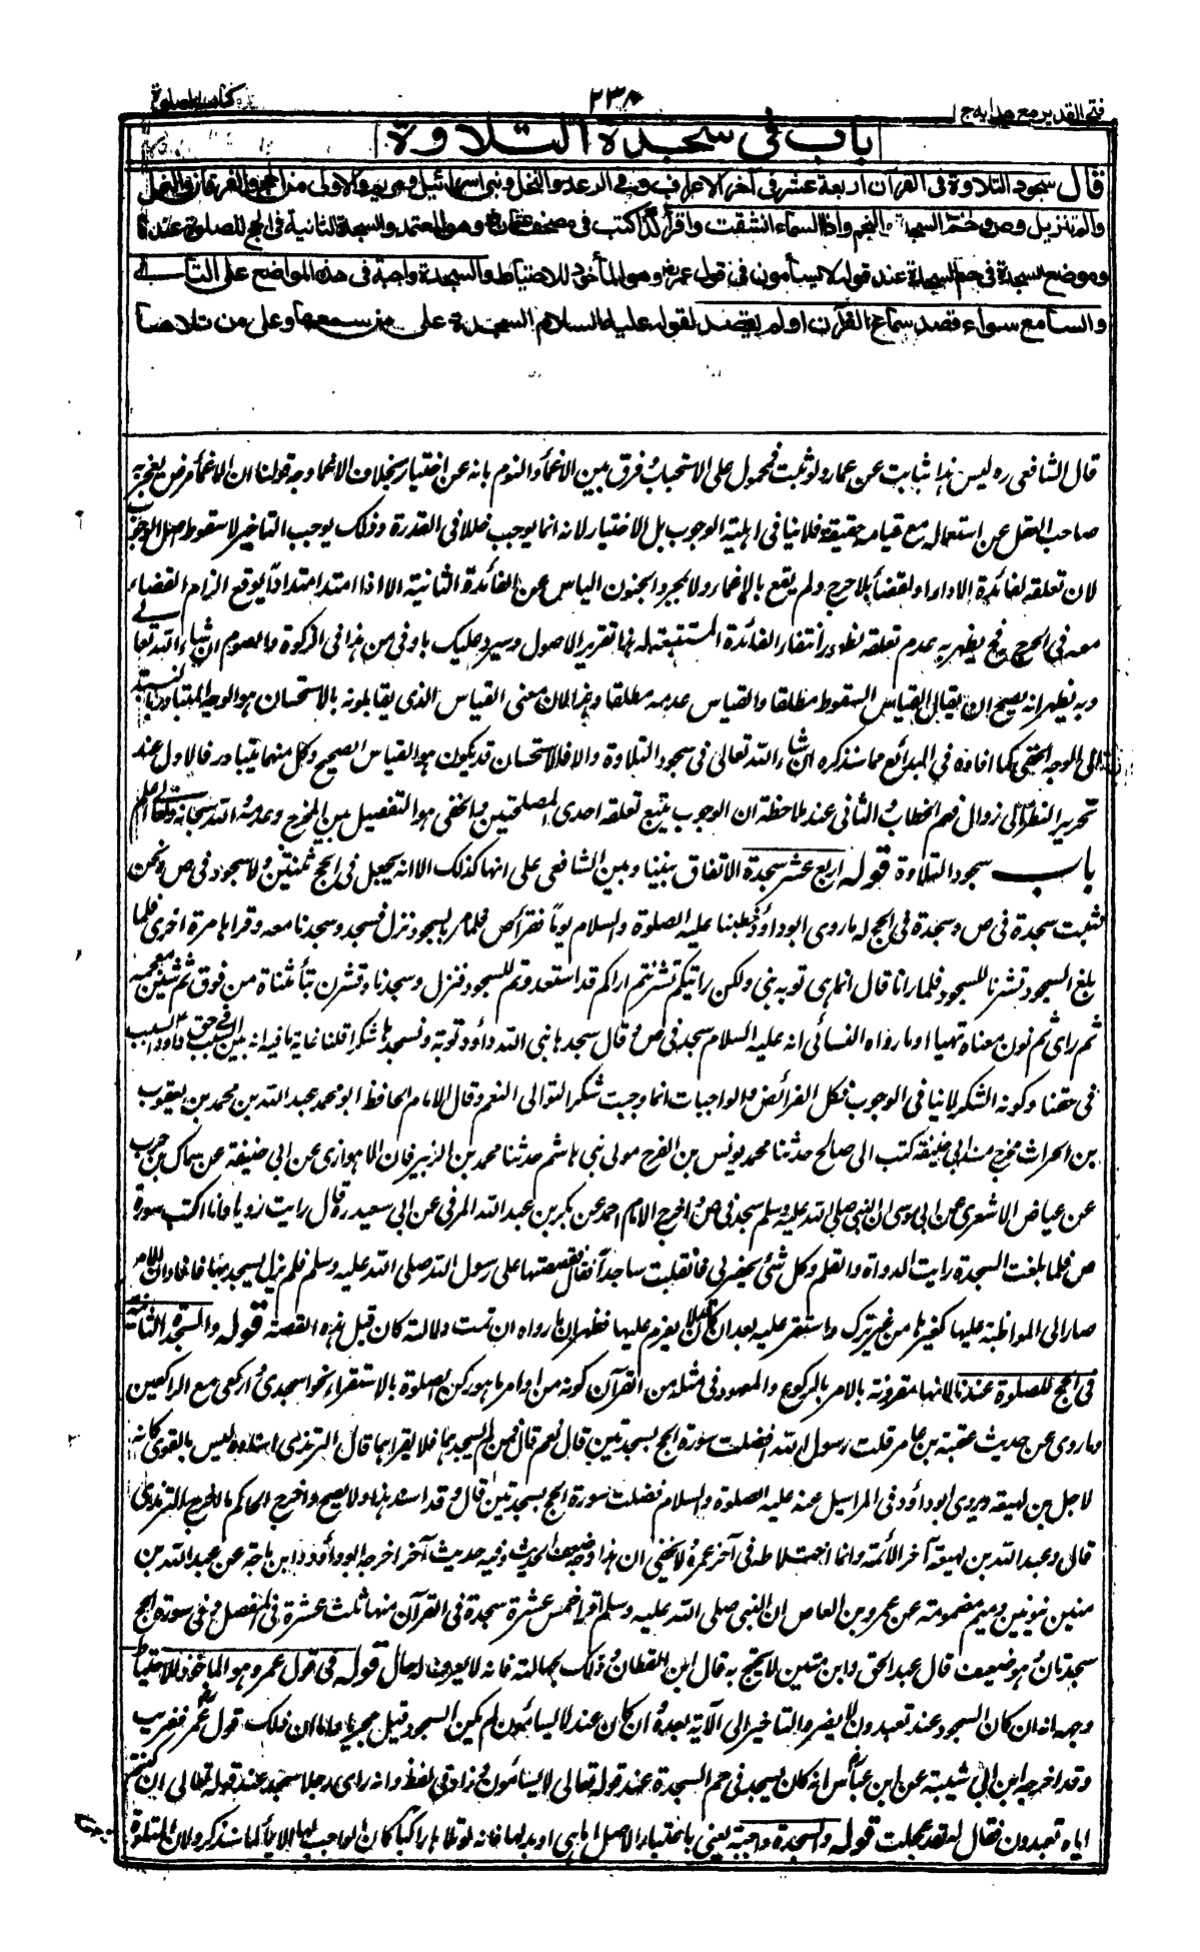 فتح القدير مع هدايه ج ا
٢٣٨
كتاب الصلوة
باب في سجدة التلاوة
قال سجود التلاوة في القرآن اربعة عشر في آخر الاعراف وفي الرعد والنحل وبني اسرائيل ومريم والاولى من الحج والفرقان والنمل
والم تنزيل وص وحٰم السجدة والنجم واذا السماء انشقت واقرأ كذا كتب في مصحف عثمان رض وهو المعتمد والسجدة الثانية في الحج للصلوة عندنا
وموضع السجدة في حم السجدة عند قوله لا يسأمون في قول عمر رض وهو الماخوذ للاحتياط والسجدة واجبة في هذه المواضع على التالي
والسامع سواء قصد سماع القرآن او لم يقصد لقوله عليه السلام السجدة على من سمعها وعلى من تلاها
قال الشافعي ره ليس هذا بثابت عن عمار ولو ثبت فمحمول على الاستحباب وفرق بين الاغماء والنوم بانه عن اختيار بخلاف الاغما وجه قولنا ان الاغماء مرض يعجز به
صاحب العقل عن استعماله مع قيامه حقيقة فلا ينافي اهلية الوجوب بل الاختيار لانه انما يوجب خللا في القدرة وذلك يوجب التاخير لا سقوط اصل الوجوب
لان تعلقه لفائدة الاداء او القضاء بلا حرج ولم يقع بالاغماء ولا بجرد الجنون الياس عن الفائدة الثانية الا اذا امتد امتدادا يوقع الزام القضاء
معه في الحرج فح يظهر به عدم تعلقه لظهور انتفاء الفائدة المستتبعة له هذا تقرير الاصول وسيرد عليك باوفى من هذا في الزكوة والصوم ان شاء الله تعالى
وبه يظهر انه يصح ان يقال القياس السقوط مطلقا والقياس عدمه مطلقا وهذا لان معنى القياس الذي يقابلونه بالاستحسان هو الوجه المتبادر بالنسبة
الى الوجه الخفي كما افاده في البدائع مما سنذكره ان شاء الله تعالى في سجود التلاوة والا فالاستحسان قد يكون هو القياس الصحيح وكل منهما يتبادر فالاول عند
تجريد النظر الى زوال فهم الخطاب والثاني عند ملاحظة ان الوجوب يتبع تعلقه احدى المصلحتين والخفي هو التفصيل بين المخرج وعدمه والله سبحانه وتعالى اعلم
باب سجود التلاوة قوله اربع عشر سجدة الاتفاق بيننا وبين الشافعي على انها كذلك الا انه يجعل في الحج ثنتين ولا سجود في ص ونحن
نثبت سجدة في ص وسجدة في الحج له ما روى ابو داؤد خطبنا عليه الصلوة والسلام يوما فقرأ ص فلما مر بالسجود نزل فسجد وسجدنا معه وقراها مرة اخرى فلما
بلغ السجود تشزنا للسجود فلما رانا قال انما هي توبه نبي ولكن راتيكم تشزنتم اراكم قد استعدوتم للسجود فنزل وسجدنا وتشزن بتاء مثناة من فوق ثم شين معجمة
ثم زاي ثم نون معناه تهيأ او ما رواه النسائي انه عليه السلام سجد في ص وقال سجدها نبي الله داؤد توبة ونسجدها شكرا قلنا غاية ما فيه انه بين السبب في حق داود والسبب
في حقنا وكونه الشكر لا ينافي الوجوب فكل الفرائض والواجبات انما وجبت شكرا لتوالي النعم وقال الامام الحافظ ابو محمد عبد الله بن محمد بن يعقوب
بن الحراث مخرج مسند ابي حنيفة كتب الى صالح حدثنا محمد يونس بن الفرج مولى بني هاشم حدثنا محمد بن الزبرقان الاهوازي عن ابي حنيفة عن سماك بن حرب
عن عياض الاشعري عن ابي موسى ان النبي صلى الله عليه وسلم سجد في ص واخرج الامام احمد عن بكر بن عبد الله المزني عن ابي سعيد رض قال رايت رؤيا وانا اكتب سورة
ص فلما بلغت السجدة رايت الدواة والقلم وكل شئ بحضرني فانقلبت ساجدا قال فقصصتها على رسول الله صلى الله عليه وسلم فلم يزل يسجد بها فافاد ان الامر
صار الى المواظبة عليها كغيرها من غير ترك واستقر عليه بعد ان كان لا يعزم عليها فظهر ان ما رواه ان تمت دلالته كان قبل هذه القصة قوله والسجدة الثانية
في الحج للصلوة عندنا لانها مقرونة بالامر بالركوع والمعهود في مثله من القرآن كونه من اوامر ما هو ركن الصلوة بالاستقراء نحو اسجدي واركعي مع الراكعين
وما روى عن حديث عقبة بن عامر قلت رسول الله افضلت سورة الحج بسجدتين قال نعم قال فمن لم يسجدهما فلا يقراهما قال الترمذي اسناده ليس بالقوي كانه
لاجل بن لهيعة وروى ابو داؤد في المراسيل عنه عليه الصلوة والسلام فضلت سورة الحج بسجدتين قال وقد اسند هذا ولا يصح واخرج الحاكم ما اخرج الترمذي
قال وعبد الله بن لهيعة آخر الائمة وانما اختلاطه في آخر عمره ولا يخفى ان هذا وجه ضعف الحديث وفيه حديث آخر اخرجه ابو داؤد وابن ماجة عن عبد الله بن
منين بنونين وميم مضمومة عن عمرو بن العاص ان النبي صلى الله عليه وسلم اقرأ خمس عشرة سجدة في القرآن منها ثلث عشرة في المفصل وفي سورة الحج
سجدتان وهو ضعيف قال عبد الحق وابن منين لا يحتج به قال ابن القطان وذلك بجهالته فانه لا يعرف له حال قوله في قول عمر وهو الماخوذ للاحتياط
وجهه انه ان كان السجود عند تعبدون لا يضره التاخير الى الآية بعده وان كان عند لا يسأمون لم يكن السجود قبل مجزيا واما ان ذلك قول عمر رض فغريب
وقد اخرجه ابن ابي شيبة عن ابن عباس انه كان يسجد في حم السجدة عند قوله تعالى لا يسأمون وزاد في لفظ وانه رأى رجلا سجد عند قوله تعالى ان كنتم
اياه تعبدون فقال لقد عجلت قوله والسجدة واجبة يعني باعتبار الاصل اما هي او بدلها فانه لو تلاها راكبا كان الواجب لها الايماء كما سنذكر ولان المتلوة